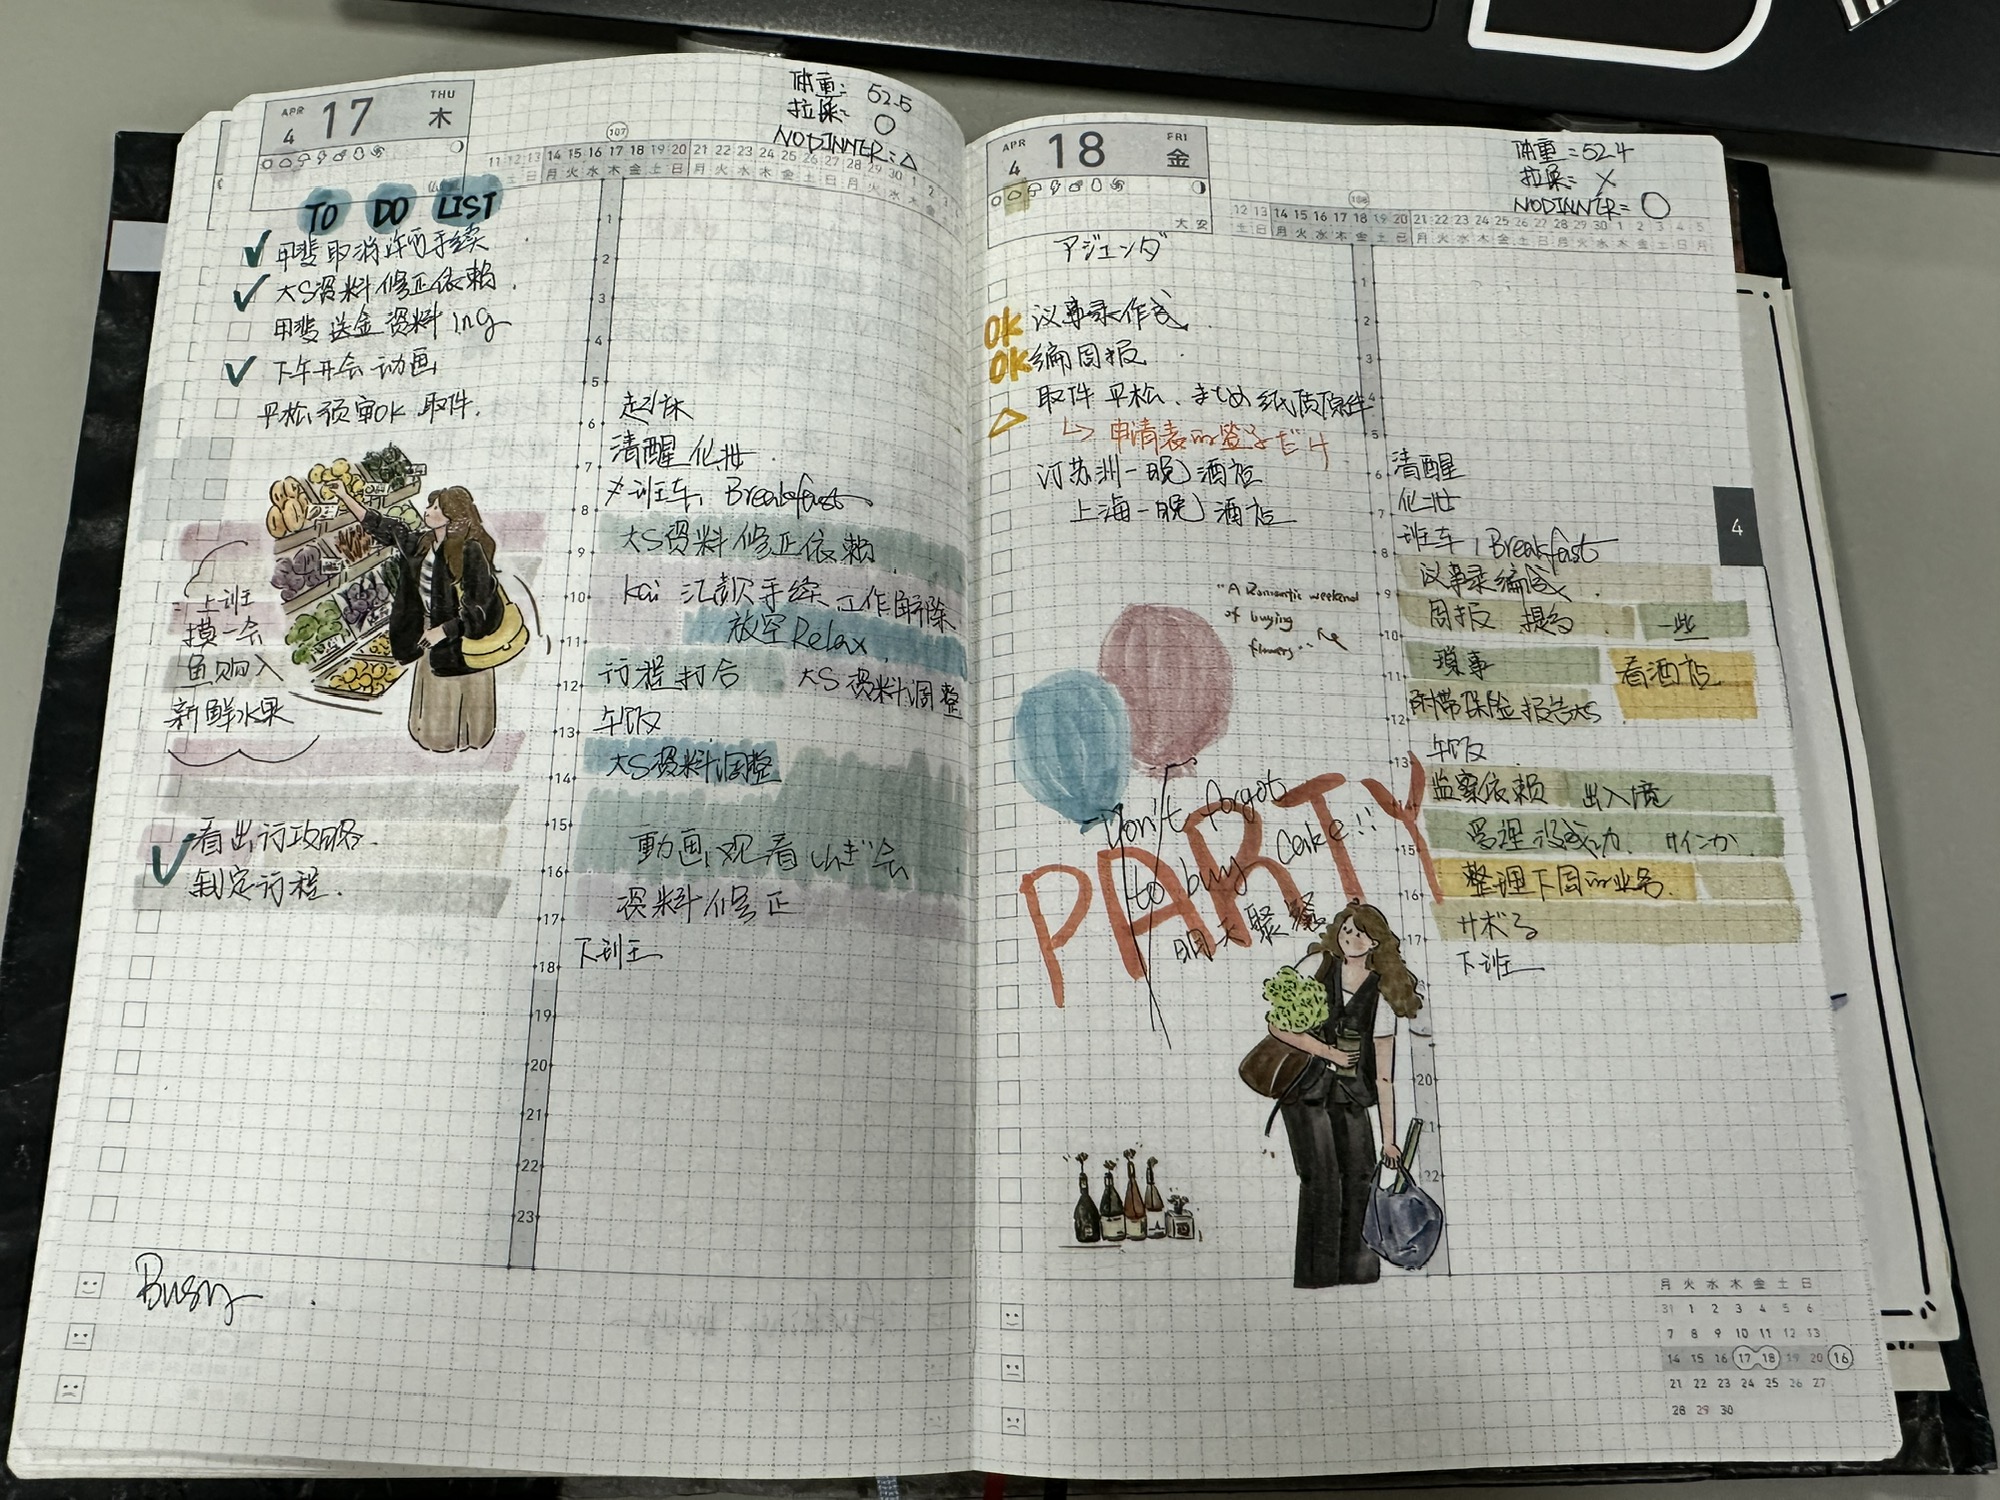 APR
4
17
THU
木
体重: 52.5
拉屎: ○
NODINNER: △
107
11 12 13 14 15 16 17 18 19 20 21 22 23 24 25 26 27 28 29 30 1 2 3 4
土 日 月 火 水 木 金 土 日 月 火 水 木 金 土 日 月 火 水 木 金
TO DO LIST
✓ 甲斐取消许可手续
✓ 大S资料修正依赖.
甲斐送金资料 ing
✓ 下午开会动画
平松预审OK 取件.
上班
摸一会
鱼购入
新鲜水果
✓ 看出行攻略.
制定行程.
1
2
3
4
5
6 起床
7 清醒 化妆.
8 班车, Breakfast
9 大S资料修正依赖.
10 kai 汇款手续 工作解除
11 放空Relax.
12 行程打合 大S资料调整
13 午饭
14 大S资料调整
15
16 動画,观看 会
17 资料修正
18 下班
19
20
21
22
23
Busy.
APR
4
18
FRI
金
大安
体重=52.4
拉屎= ×
NODINNER= ○
108
12 13 14 15 16 17 18 19 20 21 22 23 24 25 26 27 28 29 30 1 2 3 4 5
土 日 月 火 水 木 金 土 日 月 火 水 木 金 土 日 月 火 水 木 金 土 日 月
アジェンダ
OK 议事录作成.
OK 编周报.
△ 取件 平松、まとめ 纸质原件
↳ 申请表の签字だけ
订苏州一晚酒店
上海一晚酒店
"A Romantic weekend
of buying
flowers"
Don't forgot
to buy cake!!
PARTY
明天聚餐
1
2
3
4
5
6 清醒
7 化妆
8 班车, Breakfast
9 议事录编成.
10 周报 提多. 一些
11 琐事 看酒店
12 附带保险报告大S
13 午饭
14 监察依赖 出入境
15 受理没成功. サインか
16 整理下周の业务.
17 サボる
下班
20
21
22
4
月 火 水 木 金 土 日
31 1 2 3 4 5 6
7 8 9 10 11 12 13
14 15 16 17 18 19 20 16
21 22 23 24 25 26 27
28 29 30